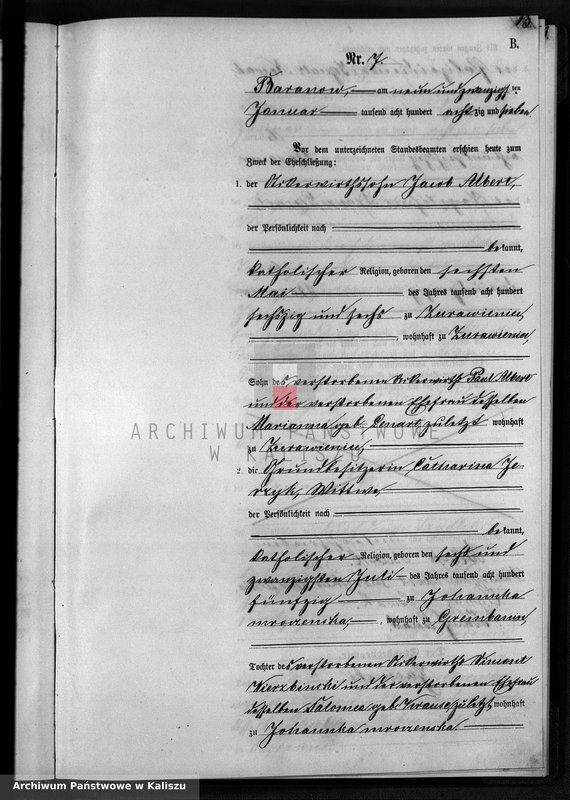 15.
B.
Nr. 7.
Baranow, am neun und zwanzigs ten
Januar tausend acht hundert acht zig und sieben
Vor dem unterzeichneten Standesbeamten erschien heute zum
Zweck der Eheschließung:
1. der Ackerwirthssohn Jacob Albert,
der Persönlichkeit nach
bekannt,
katholischer Religion, geboren den sechsten
Mai des Jahres tausend acht hundert
sechszig und sechs zu Zurawieniec,
, wohnhaft zu Zurawieniec,
Sohn des verstorbenen Ackerwirths Paul Albert
und der verstorbenen Ehefrau desselben
Marianna geb. zuletzt wohnhaft
zu Zurawieniec,
ARCHIWUM PAŃSTWOWE
W KALISZU
2. die Grundbesitzerin Catharina Je-
rzyk, Wittwe,
der Persönlichkeit nach
bekannt,
katholischer Religion, geboren den sechs und
zwanzigsten Juli des Jahres tausend acht hundert
fünfzig zu Johannka
mroczenska, , wohnhaft zu Grembanin,
Tochter des verstorbenen Ackerwirths Simont
und der verstorbenen Ehefrau
desselben Salomea geb. zuletzt wohnhaft
zu Johannka mroczenska.
Archiwum Państwowe w Kaliszu